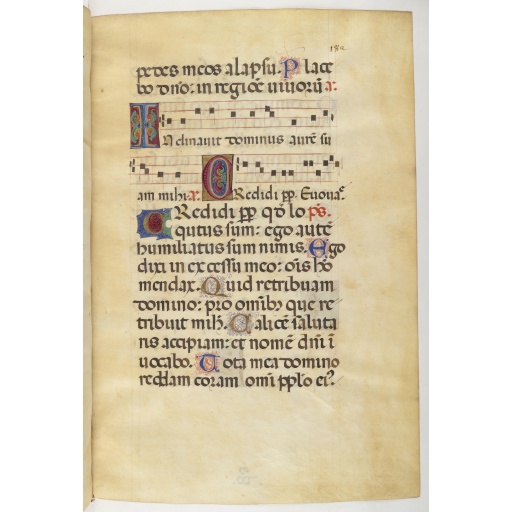 pedes meos a lapsu. Place
bo dn̄o: in regiōē uiuorū a:
Inclinauit dominus aurē su
am mihi. a: Credidi pp. Euouaē
Credidi pp qđ lo ps.
qutus sum: ego autē
humiliatus sum nimis. Ego
dixi in excessu meo: oīs hō
mendax. Quid retribuam
domino: pro omib; que re
tribuit mihi. Calicē saluta
ris accipiam: et nomē dn̄i ī
uocabo. Uota mea domino
reddam coram omī pplo ei⁹.